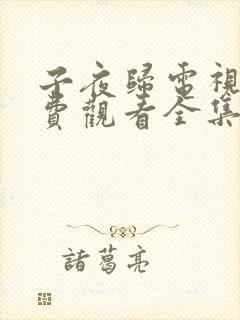 子夜歸電視
費觀看全集
諸葛亮